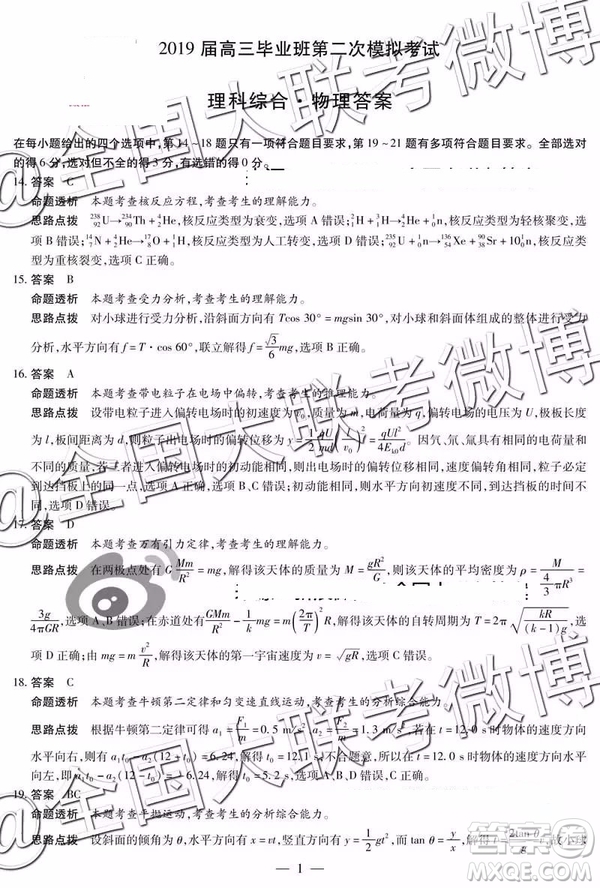 2019 届高三毕业班第二次模拟考试
理科综合·物理答案
在每小题给出的四个选项中,第 14~18 题只有一项符合题目要求,第 19~21 题有多项符合题目要求。全部选对
的得 6 分,选对但不全的得 3 分,有选错的得 0 分。
14. 答案 C
命题透析 本题考查核反应方程,考查考生的理解能力。
思路点拨 ²³⁸₉₂U→²³⁴₉₀Th+⁴₂He,核反应类型为衰变,选项 A 错误;²₁H+³₁H→⁴₂He+¹₀n,核反应类型为轻核聚变,选
项 B 错误;¹⁴₇N+⁴₂He→¹⁷₈O+¹₁H,核反应类型为人工转变,选项 D 错误;²³⁵₉₂U+¹₀n→¹⁴⁰₅₄Xe+⁹⁴₃₈Sr+2¹₀n,核反应类
型为重核裂变,选项 C 正确。
15. 答案 B
命题透析 本题考查受力分析,考查考生的理解能力。
思路点拨 对小球进行受力分析,沿斜面方向有 Tcos 30°=mgsin 30°,对小球和斜面体组成的整体进行受力
分析,水平方向有 f=T·cos 60°,联立解得 f=√3/6 mg,选项 B 正确。
16. 答案 A
命题透析 本题考查带电粒子在电场中偏转,考查考生的推理能力。
思路点拨 设带电粒子进入偏转电场时的初速度为 v₀,质量为 m,电荷量为 q,偏转电场的电压为 U,板长为
l,板间距离为 d,则粒子射出偏转电场时的偏转位移为 y=1/2 qU/md (l/v₀)²=qUl²/4E_k0d。因氕、氘、氚具有相同的电荷量和
不同的质量,若三者进入偏转电场时的初动能相同,则出电场时的偏转位移相同,速度偏转角相同,粒子必定
到达挡板上同一位置,选项 A 正确,选项 B、C 错误;若初动能相同,则水平方向初速度不相同,到达挡板的时
间不同,选项 D 错误。
17. 答案 D
命题透析 本题考查万有引力定律,考查考生的理解能力。
思路点拨 在两极点处有 G Mm/R²=mg,解得该天体的质量为 M=gR²/G,则该天体的平均密度为 ρ=M/(4/3 πR³)=
3g/4πGR,选项 A、B 错误;在赤道处有 G Mm/R²-1/k mg=m(2π/T)²R,解得该天体的自转周期为 T=2π√(kR/(k-1)g),选项
C 错误;由 mg=m v²/R,解得该天体的第一宇宙速度为 v=√gR,选项 D 正确。
18. 答案 C
命题透析 本题考查牛顿第二定律和匀变速直线运动,考查考生的分析综合能力。
思路点拨 根据牛顿第二定律可得 a₁=F₁/m=0.5 m/s²,a₂=F₂/m=1.3 m/s²,若在 t=12.0 s 时物体的速度方向
水平向右,则有 a₁t₀-a₂(12-t₀)=6.24,解得 t₀>12 s,不合题意,所以在 t=12.0 s 时物体的速度方向水平向
左,则有 a₁t₀-a₂(12-t₀)=-6.24,解得 t₀=5.2 s,选项 C 正确。
19. 答案 BC
命题透析 本题考查平抛运动,考查考生的分析综合能力。
思路点拨 设斜面的倾角为 θ,水平方向有 x=vt,竖直方向有 y=1/2 gt²,而 tan θ=y/x,解得
— 1 —
@全国大联考微博
@全国大联考微博
@全国大联考微博